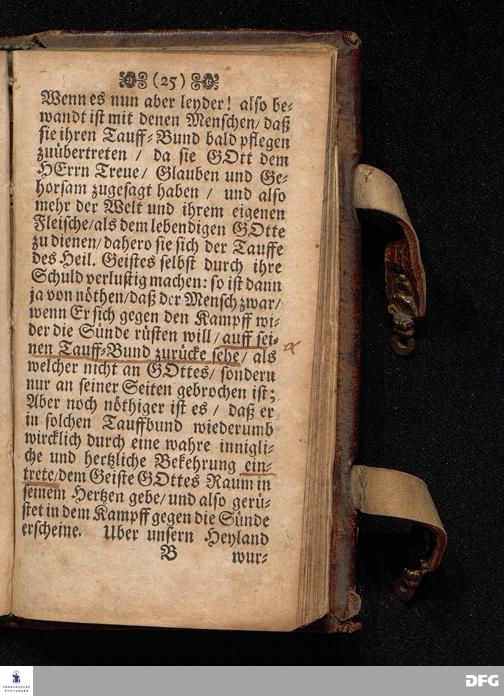 (25)
Wenn es nun aber leyder! also be-
wandt ist mit denen Menschen/ daß
sie ihren Tauff-Bund bald pflegen
zuübertreten / da sie GOtt dem
HErrn Treue/ Glauben und Ge-
horsam zugesagt haben / und also
mehr der Welt und ihrem eigenen
Fleische/als dem lebendigen GOtte
zu dienen/ dahero sie sich der Tauffe
des Heil. Geistes selbst durch ihre
Schuld verlustig machen: so ist dann
ja von nöthen/daß der Mensch zwar/
wenn Er sich gegen den Kampff wi-
der die Sünde rüsten will/ auff sei-
nen Tauff-Bund zurücke sehe/ als
welcher nicht an GOttes/ sondern
nur an seiner Seiten gebrochen ist;
Aber noch nöthiger ist es / daß er
in solchen Tauffbund wiederumb
wircklich durch eine wahre innigli-
che und hertzliche Bekehrung ein-
trete/dem Geiste GOttes Raum in
seinem Hertzen gebe/ und also gerü-
stet in dem Kampff gegen die Sünde
erscheine. Uber unsern Heyland
B wur-
FRANCKESCHE
STIFTUNGEN
DFG